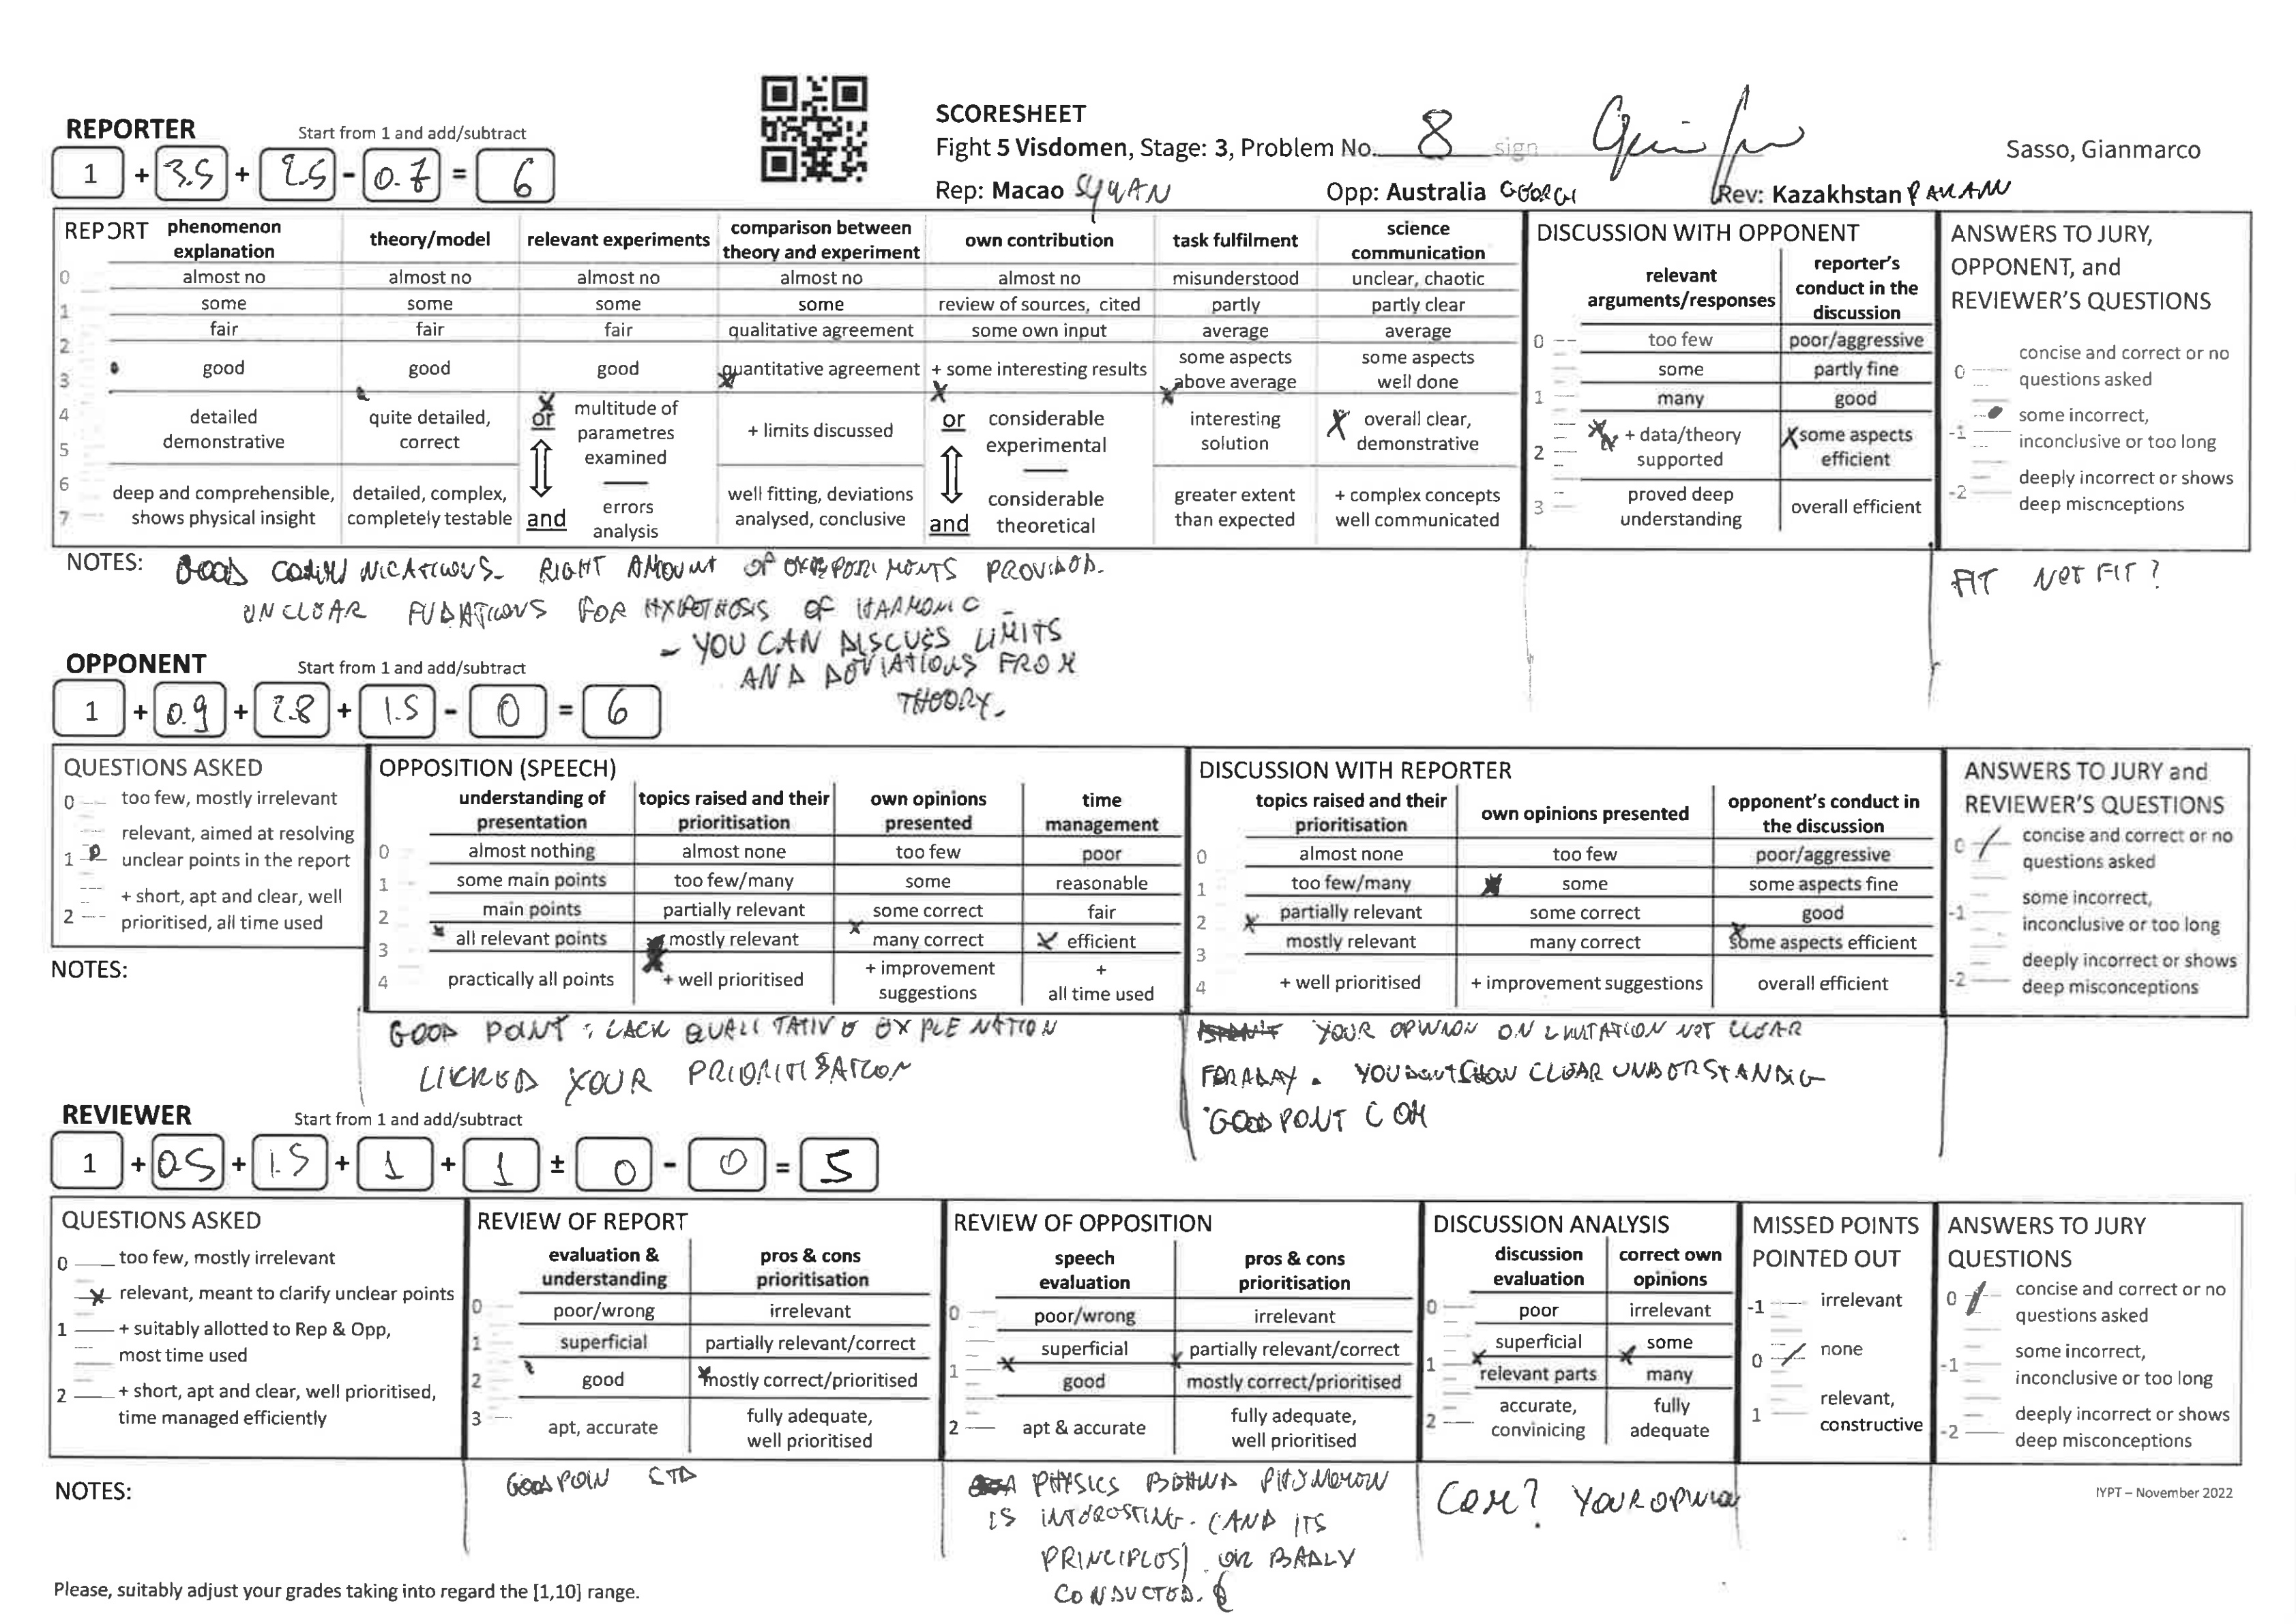 SCORESHEET
REPORTER Start from 1 and add/subtract
Fight 5 Visdomen, Stage: 3, Problem No. 8 sign
Sasso, Gianmarco
1 + 3.5 + 2.5 - 0.7 = 6
Rep: Macao SIYUAN Opp: Australia Rev: Kazakhstan
REPORT
phenomenon explanation
almost no
some
fair
good
detailed demonstrative
deep and comprehensible, shows physical insight
theory/model
almost no
some
fair
good
quite detailed, correct
detailed, complex, completely testable
relevant experiments
almost no
some
fair
good
or multitude of parametres examined
and errors analysis
comparison between theory and experiment
almost no
some
qualitative agreement
quantitative agreement
+ limits discussed
well fitting, deviations analysed, conclusive
own contribution
almost no
review of sources, cited
some own input
+ some interesting results
or considerable experimental
and considerable theoretical
task fulfilment
misunderstood
partly
average
some aspects above average
interesting solution
greater extent than expected
science communication
unclear, chaotic
partly clear
average
some aspects well done
overall clear, demonstrative
+ complex concepts well communicated
0
1
2
3
4
5
6
7
DISCUSSION WITH OPPONENT
relevant arguments/responses
too few
some
many
+ data/theory supported
proved deep understanding
reporter's conduct in the discussion
poor/aggressive
partly fine
good
some aspects efficient
overall efficient
0
1
2
3
ANSWERS TO JURY,
OPPONENT, and
REVIEWER'S QUESTIONS
0 concise and correct or no questions asked
-1 some incorrect, inconclusive or too long
-2 deeply incorrect or shows deep miscnceptions
NOTES: GOOD RIGHT AMOUNT OF PROVIDED.
UNCLEAR FOR OF HARMONIC
- YOU CAN DISCUSS LIMITS
AND DEVIATIONS FROM
THEORY.
FIT NOT FIT?
OPPONENT Start from 1 and add/subtract
1 + 0.9 + 2.8 + 1.5 - 0 = 6
QUESTIONS ASKED
0 too few, mostly irrelevant
1 relevant, aimed at resolving unclear points in the report
2 + short, apt and clear, well prioritised, all time used
NOTES:
OPPOSITION (SPEECH)
understanding of presentation
almost nothing
some main points
main points
all relevant points
practically all points
topics raised and their prioritisation
almost none
too few/many
partially relevant
mostly relevant
+ well prioritised
own opinions presented
too few
some
some correct
many correct
+ improvement suggestions
time management
poor
reasonable
fair
efficient
+ all time used
0
1
2
3
4
GOOD POINT: LACK QUALITATIVE EXPLENATION
YOUR PRIORITISATION
DISCUSSION WITH REPORTER
topics raised and their prioritisation
almost none
too few/many
partially relevant
mostly relevant
+ well prioritised
own opinions presented
too few
some
some correct
many correct
+ improvement suggestions
opponent's conduct in the discussion
poor/aggressive
some aspects fine
good
some aspects efficient
overall efficient
0
1
2
3
4
YOUR OPINION ON LIMITATION NOT CLEAR
FARADAY. YOU CLEAR UNDERSTANDING
GOOD POINT COM
ANSWERS TO JURY and
REVIEWER'S QUESTIONS
0 concise and correct or no questions asked
-1 some incorrect, inconclusive or too long
-2 deeply incorrect or shows deep misconceptions
REVIEWER Start from 1 and add/subtract
1 + 0.5 + 1.5 + 1 + 1 ± 0 - 0 = 5
QUESTIONS ASKED
0 too few, mostly irrelevant
relevant, meant to clarify unclear points
1 + suitably allotted to Rep & Opp, most time used
2 + short, apt and clear, well prioritised, time managed efficiently
NOTES:
REVIEW OF REPORT
evaluation & understanding
poor/wrong
superficial
good
apt, accurate
pros & cons prioritisation
irrelevant
partially relevant/correct
mostly correct/prioritised
fully adequate, well prioritised
0
1
2
3
REVIEW OF OPPOSITION
speech evaluation
poor/wrong
superficial
good
apt & accurate
pros & cons prioritisation
irrelevant
partially relevant/correct
mostly correct/prioritised
fully adequate, well prioritised
0
1
2
PHYSICS BEHIND
IS INTERESTING. (AND ITS
PRINCIPLES) OR BADLY
CONDUCTED.
DISCUSSION ANALYSIS
discussion evaluation
poor
superficial
relevant parts
accurate, convinicing
correct own opinions
irrelevant
some
many
fully adequate
0
1
2
MISSED POINTS
POINTED OUT
-1 irrelevant
0 none
1 relevant, constructive
ANSWERS TO JURY
QUESTIONS
0 concise and correct or no questions asked
-1 some incorrect, inconclusive or too long
-2 deeply incorrect or shows deep misconceptions
IYPT – November 2022
Please, suitably adjust your grades taking into regard the [1,10] range.